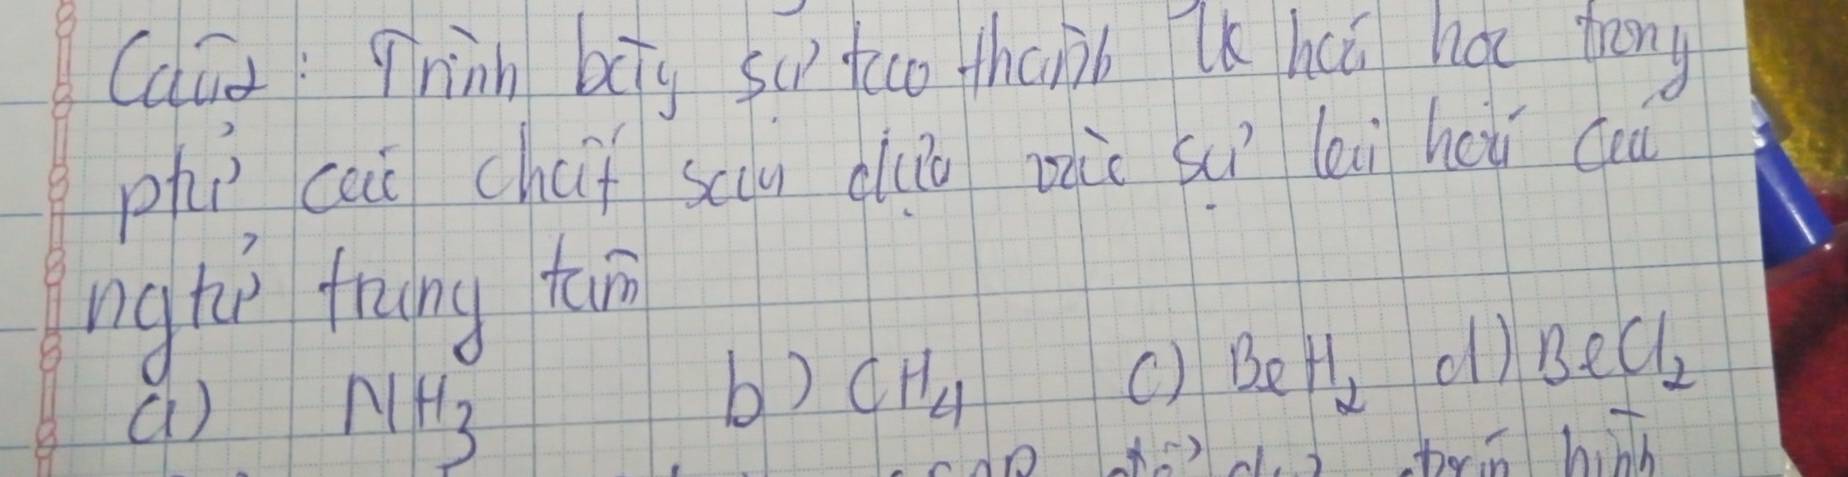 Câu2: Trình bày sự tạo thành lk hoá học trong
phtử các chất sau dựa vào sự lai hoá của
ngtử trung tâm
a) NH3 b) CH4 c) BeH2 d) BeCl2
hình